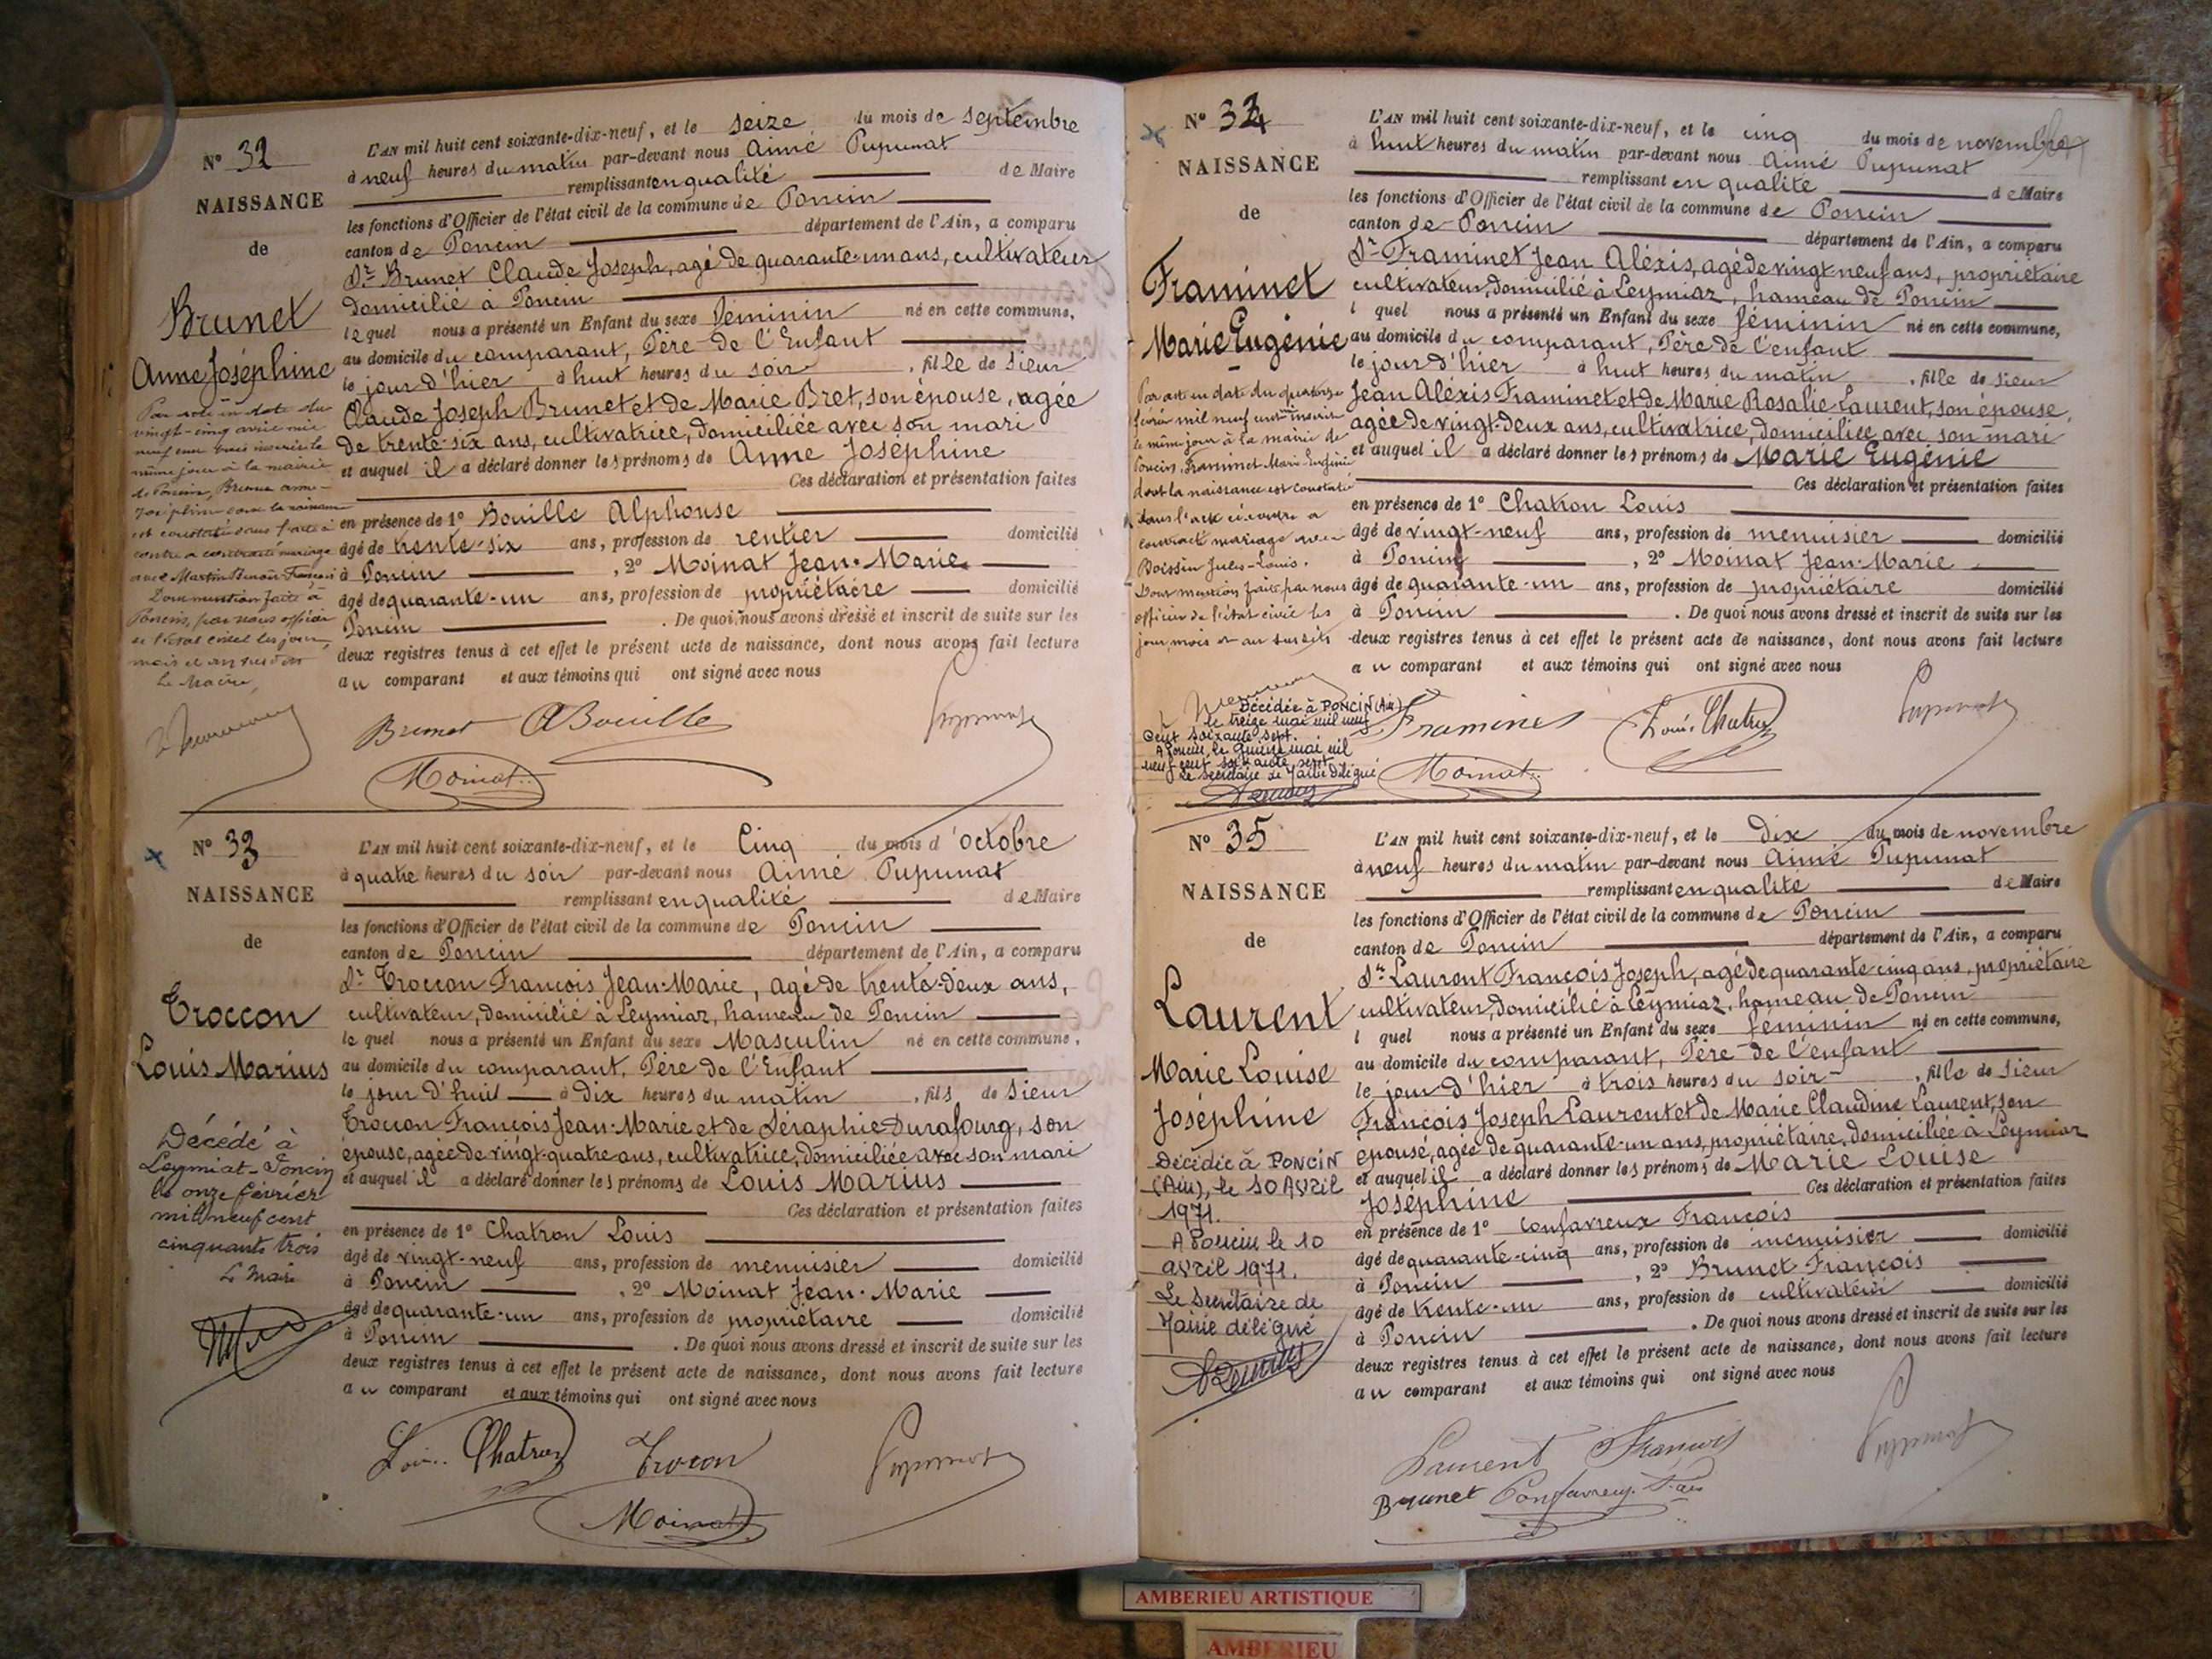 N° 32
NAISSANCE
de
Brunet
Anne Joséphine
Par acte en date du
vingt-cinq avril mil
neuf cent trois inscrit le
même jour à la mairie
de Poncin, Brunet Anne-
Joséphine dont la naissance
est constatée dans l'acte ci
contre a contracté mariage
avec Martin Benoit-François
Dont mention faite à
Poncin, par nous officier
de l'état civil les jour,
mois et an susdits
Le Maire,
L'AN mil huit cent soixante-dix-neuf, et le seize du mois de septembre
à neuf heures du matin par-devant nous Aimé Pupunat
remplissant en qualité de Maire
les fonctions d'Officier de l'état civil de la commune de Poncin
canton de Poncin département de l'Ain, a comparu
Sr Brunet Claude Joseph, agé de quarante-un ans, cultivateur
domicilié à Poncin
lequel nous a présenté un Enfant du sexe féminin né en cette commune,
au domicile du comparant, Père de l'Enfant
le jour d'hier à huit heures du soir, fille de sieur
Claude Joseph Brunet et de Marie Bret, son épouse, agée
de trente-six ans, cultivatrice, domiciliée avec son mari
et auquel il a déclaré donner les prénoms de Anne Joséphine
Ces déclaration et présentation faites
en présence de 1° Bouille Alphonse
âgé de trente-six ans, profession de rentier domicilié
à Poncin, 2° Moinat Jean-Marie
âgé de quarante-un ans, profession de propriétaire domicilié
Poncin. De quoi nous avons dressé et inscrit de suite sur les
deux registres tenus à cet effet le présent acte de naissance, dont nous avons fait lecture
au comparant et aux témoins qui ont signé avec nous
Brunet ABouille Pupunat
Moinat
N° 33
NAISSANCE
de
Troccon
Louis Marius
Décédé à
Leymiat-Poncin
le onze février
mil neuf cent
cinquante trois
Le Maire
L'AN mil huit cent soixante-dix-neuf, et le Cinq du mois d'octobre
à quatre heures du soir par-devant nous Aimé Pupunat
remplissant en qualité de Maire
les fonctions d'Officier de l'état civil de la commune de Poncin
canton de Poncin département de l'Ain, a comparu
Sr Troccon François Jean-Marie, agé de trente-deux ans,
cultivateur, domicilié à Leymiaz, hameau de Poncin
lequel nous a présenté un Enfant du sexe Masculin né en cette commune,
au domicile du comparant, Père de l'Enfant
le jour d'hui à dix heures du matin, fils de sieur
Troccon François Jean-Marie et de Séraphie Durafourg, son
épouse, agée de vingt-quatre ans, cultivatrice, domiciliée avec son mari
et auquel il a déclaré donner les prénoms de Louis Marius
Ces déclaration et présentation faites
en présence de 1° Chatron Louis
âgé de vingt-neuf ans, profession de menuisier domicilié
à Poncin, 2° Moinat Jean-Marie
âgé de quarante-un ans, profession de propriétaire domicilié
à Poncin. De quoi nous avons dressé et inscrit de suite sur les
deux registres tenus à cet effet le présent acte de naissance, dont nous avons fait lecture
au comparant et aux témoins qui ont signé avec nous
Louis Chatron Trocon Pupunat
Moinat
N° 34
NAISSANCE
de
Framinet
Marie Eugénie
Par acte en date du quatorze
février mil neuf cent inscrit
le même jour à la mairie de
Poncin, Framinet Marie-Eugénie
dont la naissance est constatée
dans l'acte ci-contre a
contracté mariage avec
Boissin Jules-Louis.
Dont mention faite par nous
officier de l'état civil les
jour, mois et an susdits
Décédée à PONCIN (Ain)
le treize mai mil neuf
cent soixante sept.
A Poncin, le quinze mai mil
neuf cent soixante sept
Le secrétaire de Mairie délégué
L'AN mil huit cent soixante-dix-neuf, et le cinq du mois de novembre
à huit heures du matin par-devant nous Aimé Pupunat
remplissant en qualité de Maire
les fonctions d'Officier de l'état civil de la commune de Poncin
canton de Poncin département de l'Ain, a comparu
Sr Framinet Jean Aléxis, agé de vingt-neuf ans, propriétaire
cultivateur, domicilié à Leymiaz, hameau de Poncin
l quel nous a présenté un Enfant du sexe féminin né en cette commune,
au domicile du comparant, Père de l'enfant
le jour d'hier à huit heures du matin, fille de sieur
Jean Aléxis Framinet et de Marie Rosalie Laurent, son épouse,
agée de vingt-deux ans, cultivatrice, domiciliée avec son mari
et auquel il a déclaré donner les prénoms de Marie Eugénie
Ces déclaration et présentation faites
en présence de 1° Chatron Louis
âgé de vingt-neuf ans, profession de menuisier domicilié
à Poncin, 2° Moinat Jean-Marie
âgé de quarante-un ans, profession de propriétaire domicilié
à Poncin. De quoi nous avons dressé et inscrit de suite sur les
deux registres tenus à cet effet le présent acte de naissance, dont nous avons fait lecture
au comparant et aux témoins qui ont signé avec nous
Framinet Louis Chatron Pupunat
Moinat
N° 35
NAISSANCE
de
Laurent
Marie Louise
Joséphine
Décédée à PONCIN
(Ain), le 10 Avril
1971.
A Poncin le 10
avril 1971.
Le Secrétaire de
Mairie délégué
L'AN mil huit cent soixante-dix-neuf, et le dix du mois de novembre
à neuf heures du matin par-devant nous Aimé Pupunat
remplissant en qualité de Maire
les fonctions d'Officier de l'état civil de la commune de Poncin
canton de Poncin département de l'Ain, a comparu
Sr Laurent François Joseph, agé de quarante-cinq ans, propriétaire
cultivateur, domicilié à Leymiaz, hameau de Poncin
l quel nous a présenté un Enfant du sexe féminin né en cette commune,
au domicile du comparant, Père de l'enfant
le jour d'hier à trois heures du soir, fille de sieur
François Joseph Laurent et de Marie Claudine Laurent, son
épouse, agée de quarante-un ans, propriétaire, domiciliée à Leymiaz
et auquel il a déclaré donner les prénoms de Marie Louise
Joséphine Ces déclaration et présentation faites
en présence de 1° Confavreux François
âgé de quarante-cinq ans, profession de menuisier domicilié
à Poncin, 2° Brunet François
âgé de trente-un ans, profession de cultivateur domicilié
à Poncin. De quoi nous avons dressé et inscrit de suite sur les
deux registres tenus à cet effet le présent acte de naissance, dont nous avons fait lecture
au comparant et aux témoins qui ont signé avec nous
Laurent François Pupunat
Brunet Confavreux
AMBERIEU ARTISTIQUE
AMBERIEU